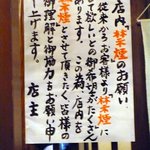 店内「禁煙」のお願い
従来からお客様より禁煙に
して欲しいとの御希望がたくさん
あります。この為、店内を
禁煙とさせて頂きたく、皆様の
御理解と御協力をお願い申
し上げます。
店主